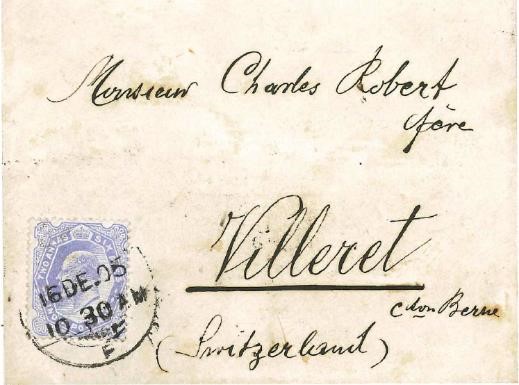 Monsieur Charles Robert
père
Villeret
cton Berne
(Switzerland)
TWO ANNAS
16 DE. 05
10 30 AM